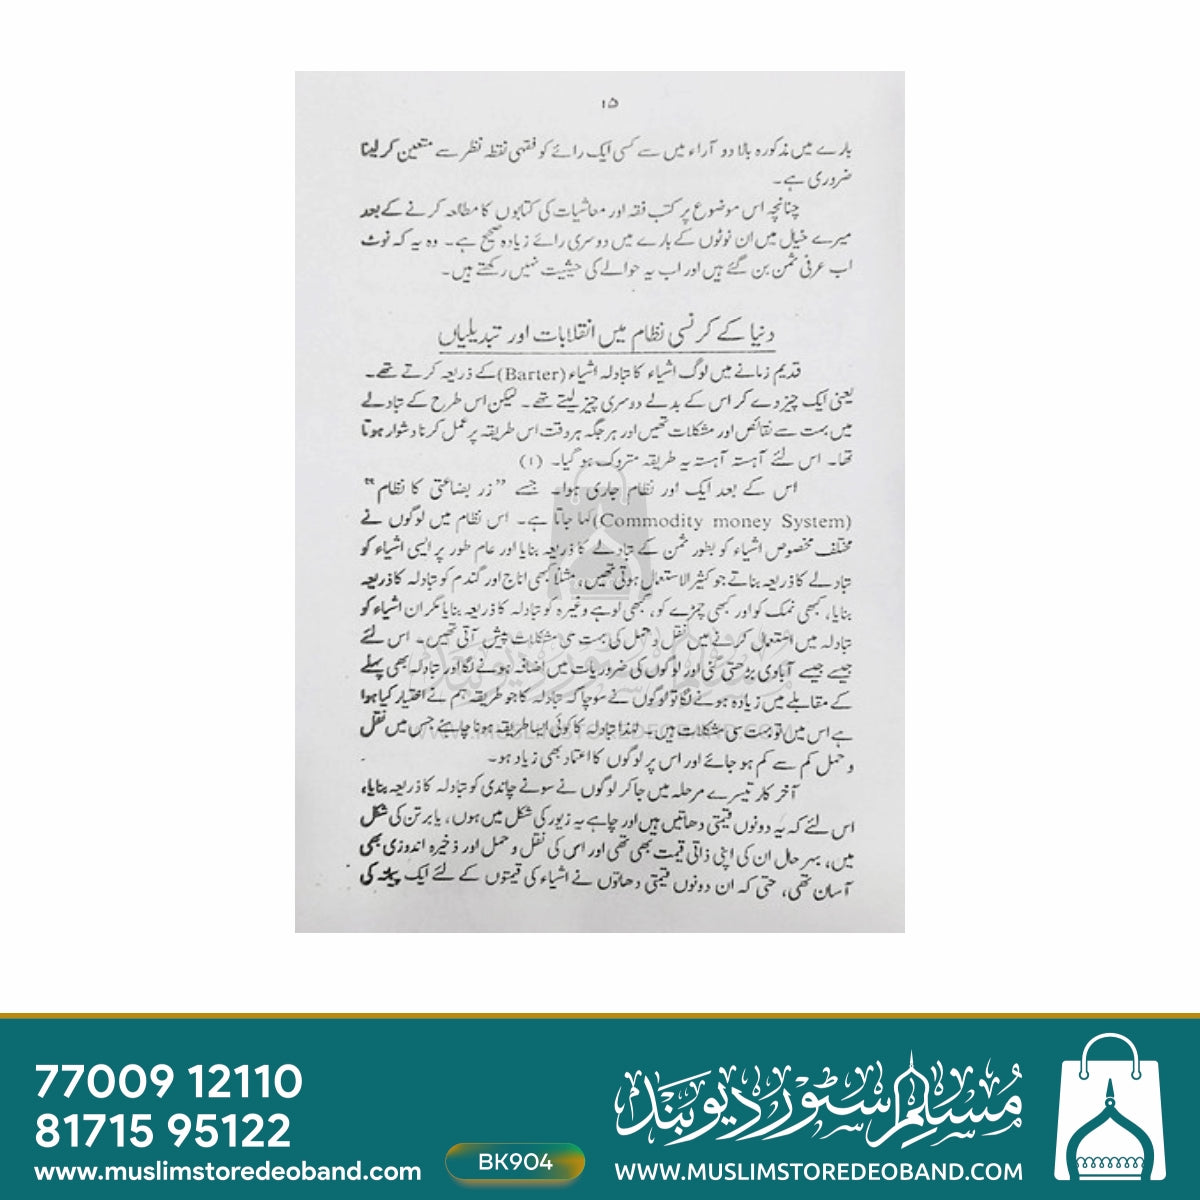 ۱۵
بارے میں مذکورہ بالا دو آراء میں سے کسی ایک رائے کو فقہی نقطہ نظر سے متعین کرلینا
ضروری ہے۔
چنانچہ اس موضوع پر کتب فقہ اور معاشیات کی کتابوں کا مطالعہ کرنے کے بعد
میرے خیال میں ان نوٹوں کے بارے میں دوسری رائے زیادہ صحیح ہے۔ وہ یہ کہ نوٹ
اب عرفی ثمن بن گئے ہیں اور اب یہ حوالے کی حیثیت نہیں رکھتے ہیں۔
دنیا کے کرنسی نظام میں انقلابات اور تبدیلیاں
قدیم زمانے میں لوگ اشیاء کا تبادلہ اشیاء (Barter) کے ذریعہ کرتے تھے۔
یعنی ایک چیز دے کر اس کے بدلے دوسری چیز لیتے تھے۔ لیکن اس طرح کے تبادلے
میں بہت سے نقائص اور مشکلات تھیں اور ہر جگہ ہر وقت اس طریقہ پر عمل کرنا دشوار ہوتا
تھا۔ اس لئے آہستہ آہستہ یہ طریقہ متروک ہو گیا۔ (۱)
اس کے بعد ایک اور نظام جاری ہوا۔ جسے "زر بضاعتی کا نظام"
(Commodity money System) کہا جاتا ہے۔ اس نظام میں لوگوں نے
مختلف مخصوص اشیاء کو بطور ثمن کے تبادلے کا ذریعہ بنایا اور عام طور پر ایسی اشیاء کو
تبادلے کا ذریعہ بناتے جو کثیر الاستعمال ہوتی تھیں، مثلاً کبھی اناج اور گندم کو تبادلہ کا ذریعہ
بنایا، کبھی نمک کو اور کبھی چمڑے کو، کبھی لوہے وغیرہ کو تبادلہ کا ذریعہ بنایا مگر ان اشیاء کو
تبادلہ میں استعمال کرنے میں نقل و حمل کی بہت سی مشکلات پیش آتی تھیں۔ اس لئے
جیسے جیسے آبادی بڑھتی گئی اور لوگوں کی ضروریات میں اضافہ ہونے لگا اور تبادلہ بھی پہلے
کے مقابلے میں زیادہ ہونے لگا تو لوگوں نے سوچا کہ تبادلہ کا جو طریقہ ہم نے اختیار کیا ہوا
ہے اس میں تو بہت سی مشکلات ہیں۔ لہٰذا تبادلہ کا کوئی ایسا طریقہ ہونا چاہئے جس میں نقل
و حمل کم سے کم ہو جائے اور اس پر لوگوں کا اعتماد بھی زیاد ہو۔
آخر کار تیسرے مرحلہ میں جاکر لوگوں نے سونے چاندی کو تبادلہ کا ذریعہ بنایا،
اس لئے کہ یہ دونوں قیمتی دھاتیں ہیں اور چاہے یہ زیور کی شکل میں ہوں، یا برتن کی شکل
میں، بہر حال ان کی اپنی ذاتی قیمت بھی تھی اور اس کی نقل و حمل اور ذخیرہ اندوزی بھی
آسان تھی، حتی کہ ان دونوں قیمتی دھاتوں نے اشیاء کی قیمتوں کے لئے ایک پیمانہ کی
مسلم سٹور دیوبند
WWW.MUSLIMSTOREDEOBAND.COM
77009 12110
81715 95122
www.muslimstoredeoband.com
BK904
مسلم سٹور دیوبند
WWW.MUSLIMSTOREDEOBAND.COM